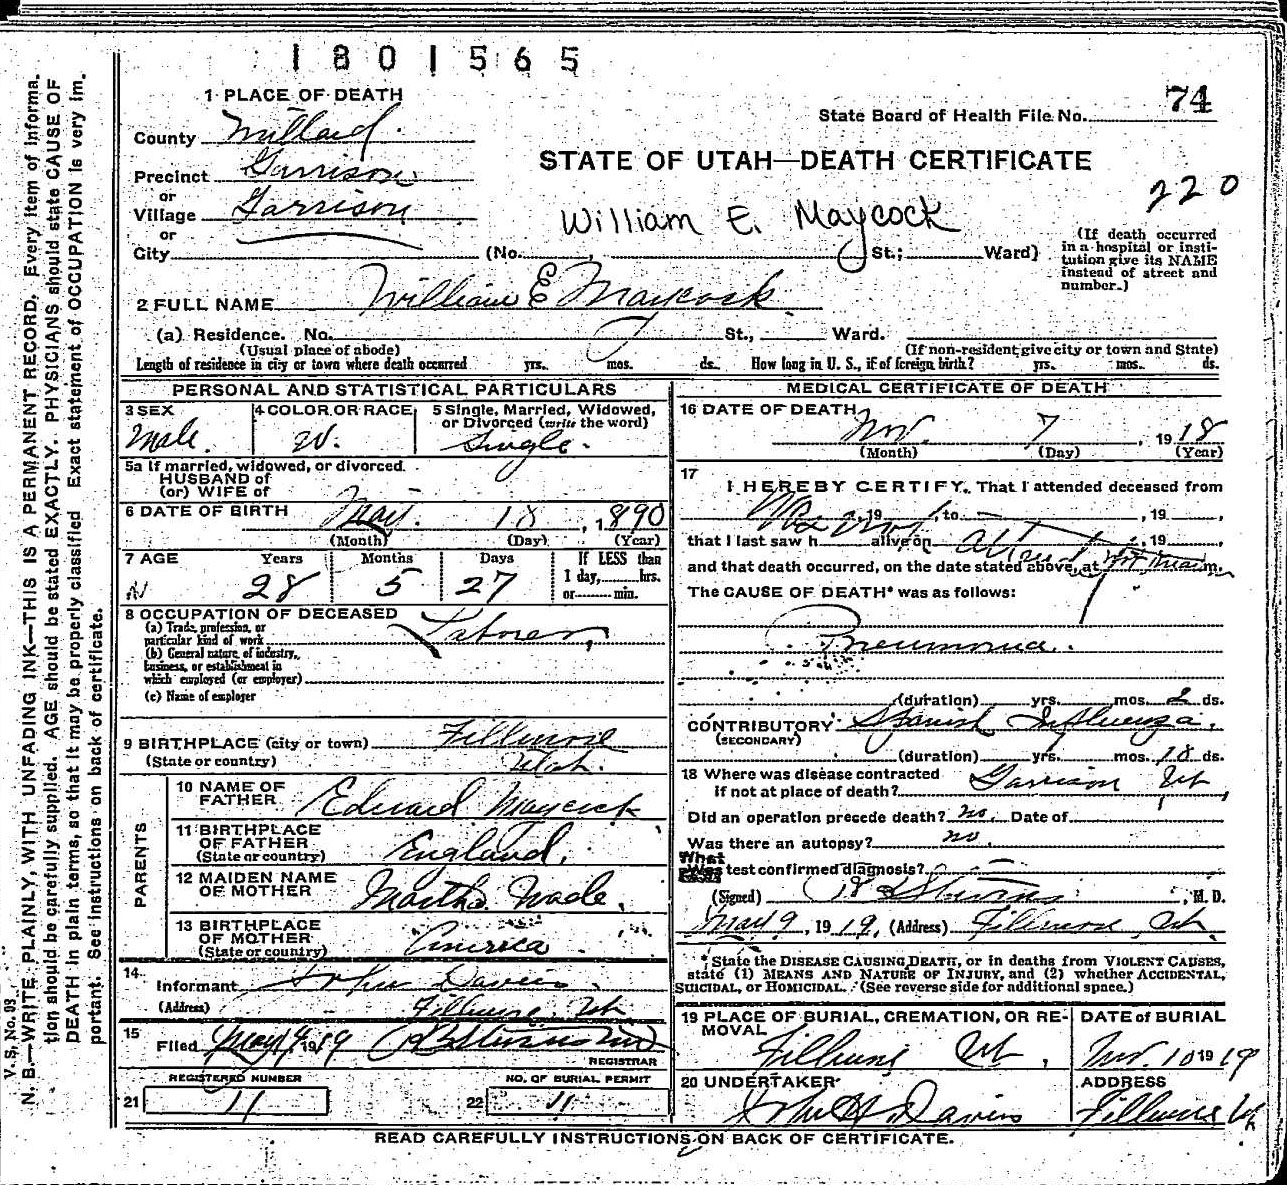 1801565
1 PLACE OF DEATH
74
State Board of Health File No.
County Millard.
STATE OF UTAH—DEATH CERTIFICATE
Precinct Garrison
220
or
Village Garrison
William E. Maycock
or
City (No. St.; Ward)
(If death occurred
in a hospital or insti-
tution give its NAME
instead of street and
number.)
2 FULL NAME William E Maycock
(a) Residence. No. St., Ward.
(Usual place of abode) (If non-resident give city or town and State)
Length of residence in city or town where death occurred yrs. mos. ds. How long in U. S., if of foreign birth? yrs. mos. ds.
PERSONAL AND STATISTICAL PARTICULARS
3 SEX 4 COLOR OR RACE 5 Single, Married, Widowed,
or Divorced (write the word)
Male. W. Single.
5a If married, widowed, or divorced
HUSBAND of
(or) WIFE of
6 DATE OF BIRTH 18, 1890
(Month) (Day) (Year)
7 AGE Years Months Days If LESS than
1 day, hrs.
or min.
28 5 27
8 OCCUPATION OF DECEASED
(a) Trade, profession, or
particular kind of work Laborer,
(b) General nature of industry,
business, or establishment in
which employed (or employer)
(c) Name of employer
9 BIRTHPLACE (city or town) Fillmore
(State or country) Utah.
PARENTS
10 NAME OF
FATHER Edward Maycock
11 BIRTHPLACE
OF FATHER
(State or country) England.
12 MAIDEN NAME
OF MOTHER Martha Wade.
13 BIRTHPLACE
OF MOTHER
(State or country) America
14
Informant John Davies
(Address) Fillmore, Ut
15
Filed May 9, 1919
REGISTRAR
REGISTERED NUMBER NO. OF BURIAL PERMIT
21 11 22 11
MEDICAL CERTIFICATE OF DEATH
16 DATE OF DEATH
Nov. 7, 1918
(Month) (Day) (Year)
17
I HEREBY CERTIFY, That I attended deceased from
Was not, 19, to, 19,
that I last saw h alive on, 19,
and that death occurred, on the date stated above, at m.
The CAUSE OF DEATH* was as follows:
Pneumonia.
(duration) yrs. mos. 2 ds.
CONTRIBUTORY Spanish Influenza.
(SECONDARY)
(duration) yrs. mos. 18 ds.
18 Where was disease contracted
if not at place of death? Garrison Ut,
Did an operation precede death? no. Date of
Was there an autopsy? no.
What test confirmed diagnosis?
(Signed) Stevens, M. D.
May 9, 1919, (Address) Fillmore, Ut.
*State the DISEASE CAUSING DEATH, or in deaths from VIOLENT CAUSES,
state (1) MEANS AND NATURE OF INJURY, and (2) whether ACCIDENTAL,
SUICIDAL, or HOMICIDAL. (See reverse side for additional space.)
19 PLACE OF BURIAL, CREMATION, OR RE-
MOVAL DATE of BURIAL
Fillmore Ut, Nov. 10 1919
20 UNDERTAKER ADDRESS
John H. Davies Fillmore Ut
READ CAREFULLY INSTRUCTIONS ON BACK OF CERTIFICATE.
V. S. No. 93.
N. B.—WRITE PLAINLY, WITH UNFADING INK—THIS IS A PERMANENT RECORD. Every item of informa-
tion should be carefully supplied. AGE should be stated EXACTLY. PHYSICIANS should state CAUSE OF
DEATH in plain terms, so that it may be properly classified. Exact statement of OCCUPATION is very im-
portant. See instructions on back of certificate.